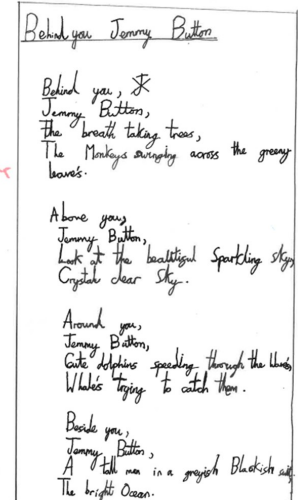 Behind you Jemmy Button
Behind you,
Jemmy Button,
The breath taking trees,
The Monkeys swinging across the greeny
leave's.
Above you,
Jemmy Button,
Look at the beautiful Sparkling sky,
Crystal clear Sky.
Around you,
Jemmy Button,
Cute dolphins speeding through the
Whale's trying to catch them.
Beside you,
Jemmy Button,
A tall man in a greyish Blackish
The bright Ocean.